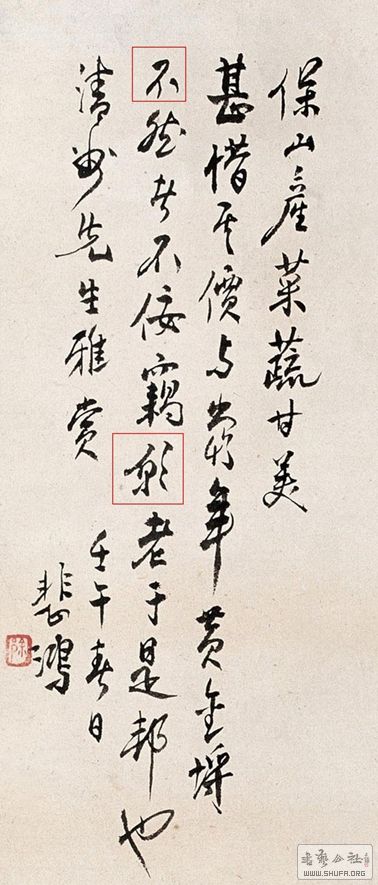 保山產菜蔬甘美
甚惜其價与年黄金埒
不然者不佞竊老于是邦也
清先生雅赏
壬午春日
悲鴻
徐
書藝公社
WWW.SHUFA.ORG